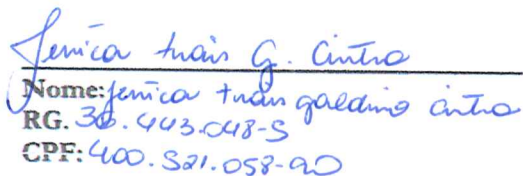 Jenica thais G. Cintra
Nome: Jenica thais galdino cintra
RG. 36.443.048-5
CPF: 400.521.058-90